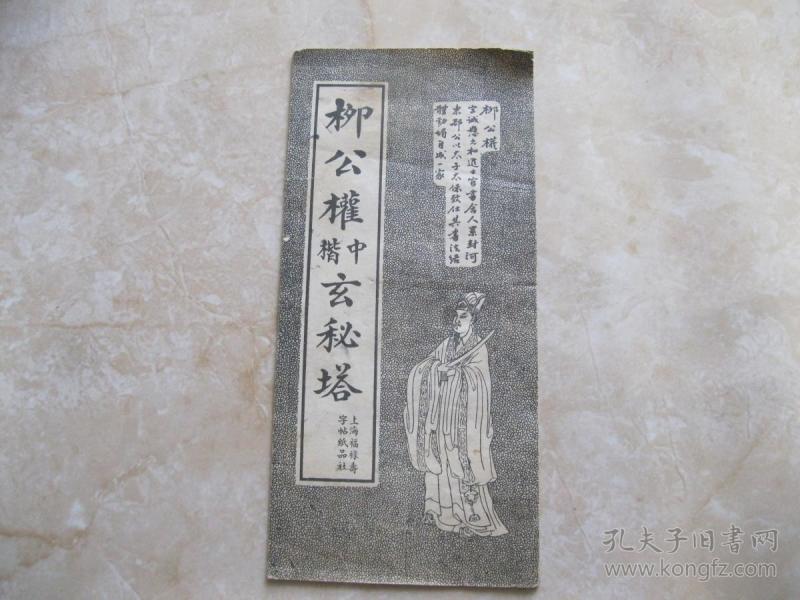 柳公權
字誠懸元和進士官書舍人累封河
東郡公以太子太保致仕其書法結
體勁媚自成一家
柳公權中楷玄秘塔
上海福祿壽
字帖紙品社
孔夫子旧书网
www.kongfz.com